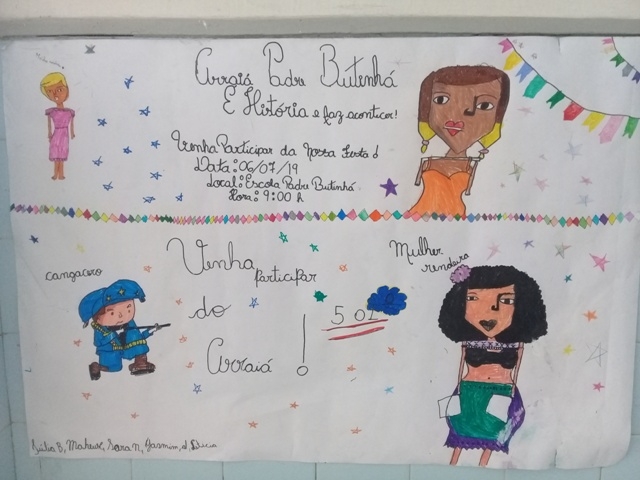 Arraiá Padre Butinhá
É História e faz acontecer!
Venha Participar da Nossa Festa!
Data: 06/07/19
Local: Escola Padre Butinhá
Hora: 9:00 h
Mulher
rendeira
cangacero
Venha
participar
do
501
Arraiá !
Júlia B, Matheus, Sara N, Jasmim,